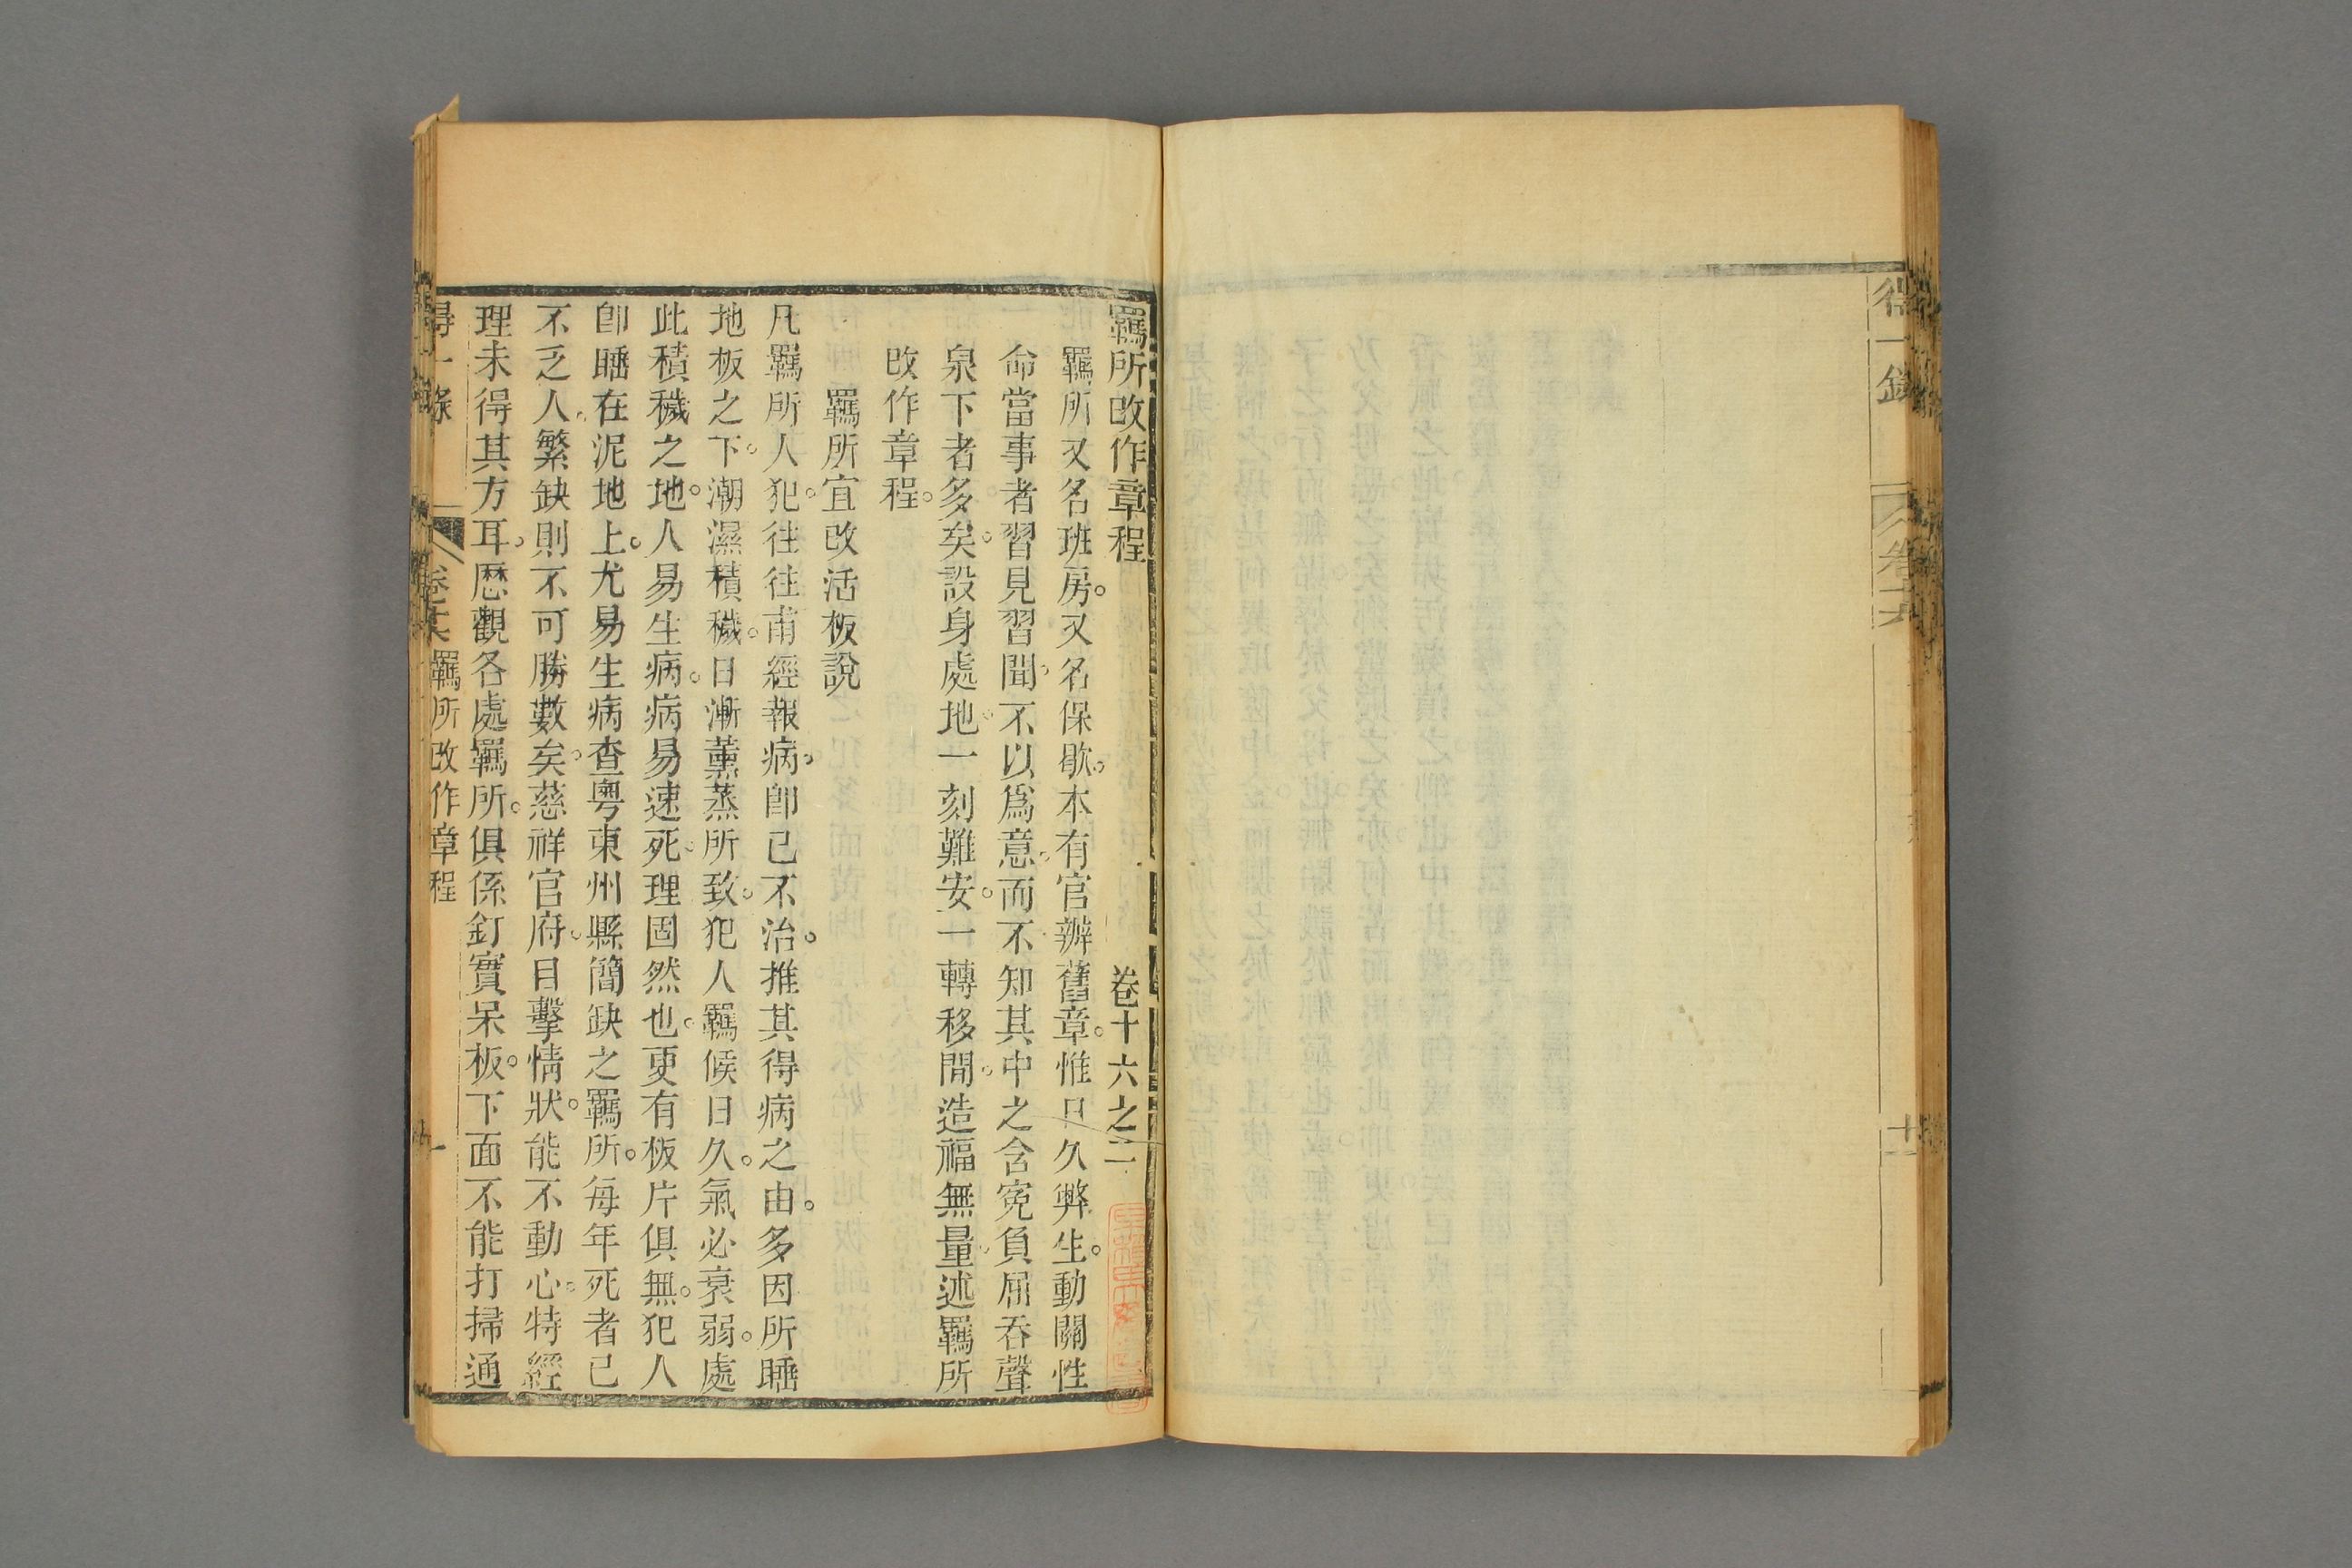 得一錄
卷十六
羈所改作章程 卷十六之二
羈所又名班房。又名保歇。本有官辦舊章。惟日久弊生。動關性
命當事者習見習聞。不以爲意。而不知其中之含寃負屈吞聲
泉下者多矣。設身處地。一刻難安。一轉移間。造福無量。述羈所
改作章程。
羈所宜改活板說
凡羈所人犯。往往甫經報病。卽已不治。推其得病之由。多因所睡
地板之下。潮濕積穢。日漸薰蒸所致。犯人羈候日久。氣必衰弱。處
此積穢之地。人易生病。病易速死。理固然也。更有板片俱無。犯人
卽睡在泥地上。尤易生病查粵東州縣簡缺之羈所。每年死者已
不乏人。繁缺則不可勝數矣。慈祥官府。目擊情狀。能不動心。特經
理未得其方耳。歷觀各處羈所。俱係釘實呆板。下面不能打掃通
得一錄 卷十六 羈所改作章程 一